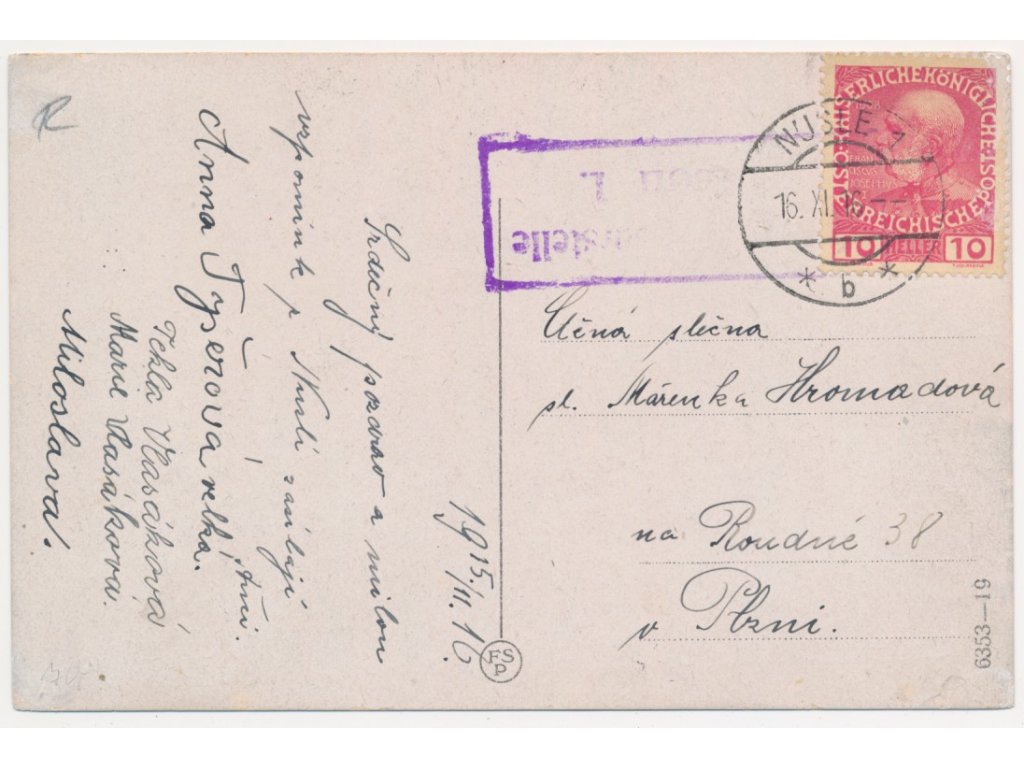 Srdečný pozdrav a milou
vzpomínk z Nuslí zasílají
Anna Typeřová
Tekla Vlasáková
Marie Vlasáková.
Miloslava.
1915/11.16.
NUSLE
16. XI. 16
* b *
KAISERLICHE KÖNIGLICHE ÖSTERREICHISCHE POST
FRANCISCUS JOSEPHUS
10 HELLER 10
rstelle
I.
Učná slečna
sl. Mářenka Hromadová
na Roudné 38
v Plzni.
6353—19